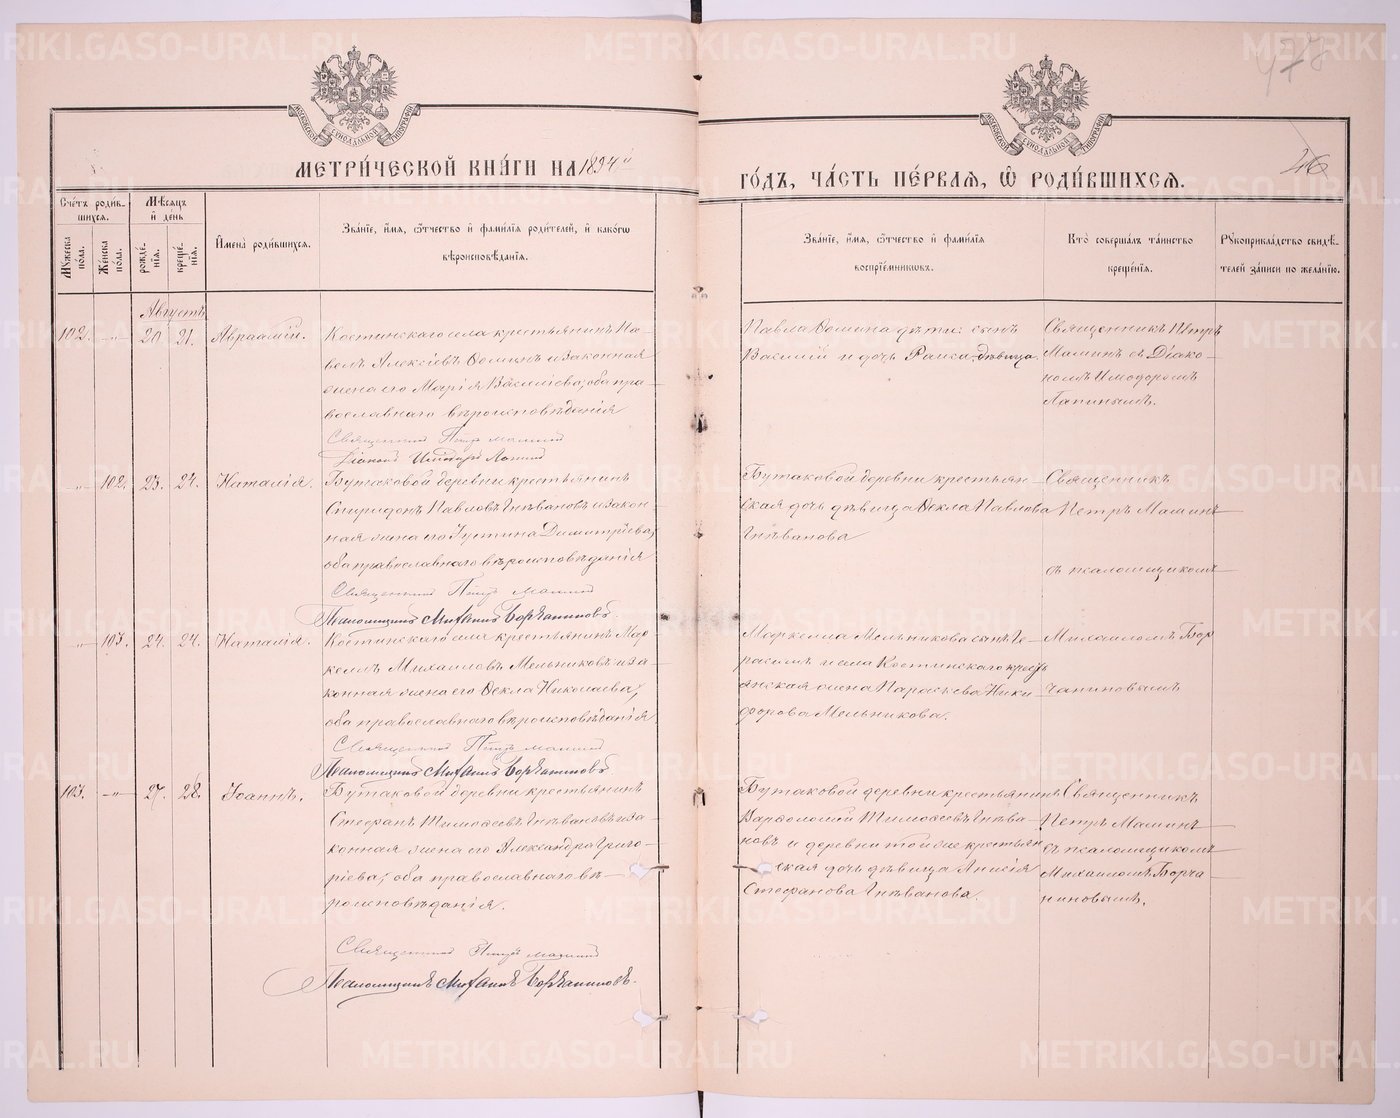 978
46
МЕТРИ́ЧЕСКОЙ КНИ́ГИ НА 1894й
ГО́ДЪ, ЧА́СТЬ ПЕ́РВАЯ, Ѽ РОДИ́ВШИХСЯ.
Сче́тъ роди́в-
шихся.
Мѣ́сяцъ
и҆ де́нь
Мꙋ́жеска по́ла.
Же́нска по́ла.
рожде́-
нїѧ.
креще́-
нїѧ.
И҆мена̀ роди́вшихся.
Зва́нїе, и҆́мя, ѻ҆́тчество и҆ фами́лїя роди́телей, и҆ како́гѡ
вѣроисповѣ́данїя.
Зва́нїе, и҆́мя, ѻ҆́тчество и҆ фами́лїя
воспрїе́мниковъ.
Кто̀ соверша́лъ та́инство
креще́нїя.
Рꙋкоприкла́дство свидѣ́-
телей за́писи по жела́нїю.
Августъ
102. -"- 20 21. Авраамій.
Костинскаго села крестьянинъ Па-
велъ Алексіевъ Ѳоминъ и законная
жена его Марія Василіева; оба пра-
вославнаго вѣроисповѣданія
Священникъ Петръ Маминъ
Діаконъ Исидоръ Лапинъ
Павла Ѳомина дѣти: сынъ
Василій и дочь Раиса, дѣвица
Священникъ Петръ
Маминъ съ Діако-
номъ Исидоромъ
Лапинымъ.
-"- 102. 23. 24. Наталія.
Бутаковой деревни крестьянинъ
Спиридонъ Павловъ Гнѣвановъ и закон-
ная жена его Іустина Димитріева;
оба православнаго вѣроисповѣданія
Священникъ Петръ Маминъ
Псаломщикъ Михаилъ Борчаниновъ
Бутаковой деревни крестьян-
ская дочь дѣвица Ѳекла Павлова
Гнѣванова
Священникъ
Петръ Маминъ
съ псаломщикомъ
-"- 103. 24. 24. Наталія.
Костинскаго села крестьянинъ Мар-
келлъ Михаиловъ Мельниковъ и за-
конная жена его Ѳекла Николаева;
оба православнаго вѣроисповѣданія
Священникъ Петръ Маминъ
Псаломщикъ Михаилъ Борчаниновъ
Маркелла Мельникова сынъ Ге-
расимъ и села Костинскаго кресть-
янская жена Параскева Ники-
форова Мельникова.
Михаиломъ Бор
чаниновымъ
103. -"- 27. 28. Іоаннъ.
Бутаковой деревни крестьянинъ
Стефанъ Тимоѳеевъ Гнѣвановъ и за-
конная жена его Александра Григо-
ріева; оба православнаго вѣ-
роисповѣданія.
Священникъ Петръ Маминъ
Псаломщикъ Михаилъ Борчаниновъ.
Бутаковой деревни крестьянинъ
Варѳоломій Тимоѳеевъ Гнѣва-
новъ и деревни той же крестьян
ская дочь дѣвица Анисія
Стефанова Гнѣванова.
Священникъ
Петръ Маминъ
съ псаломщикомъ
Михаиломъ Борча
ниновымъ.
METRIKI.GASO-URAL.RU